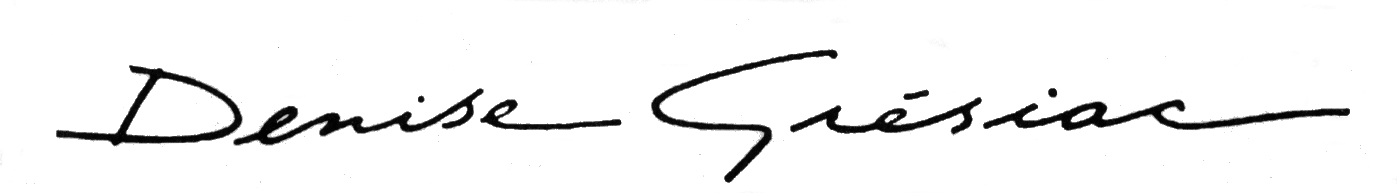 Denise Grésiac